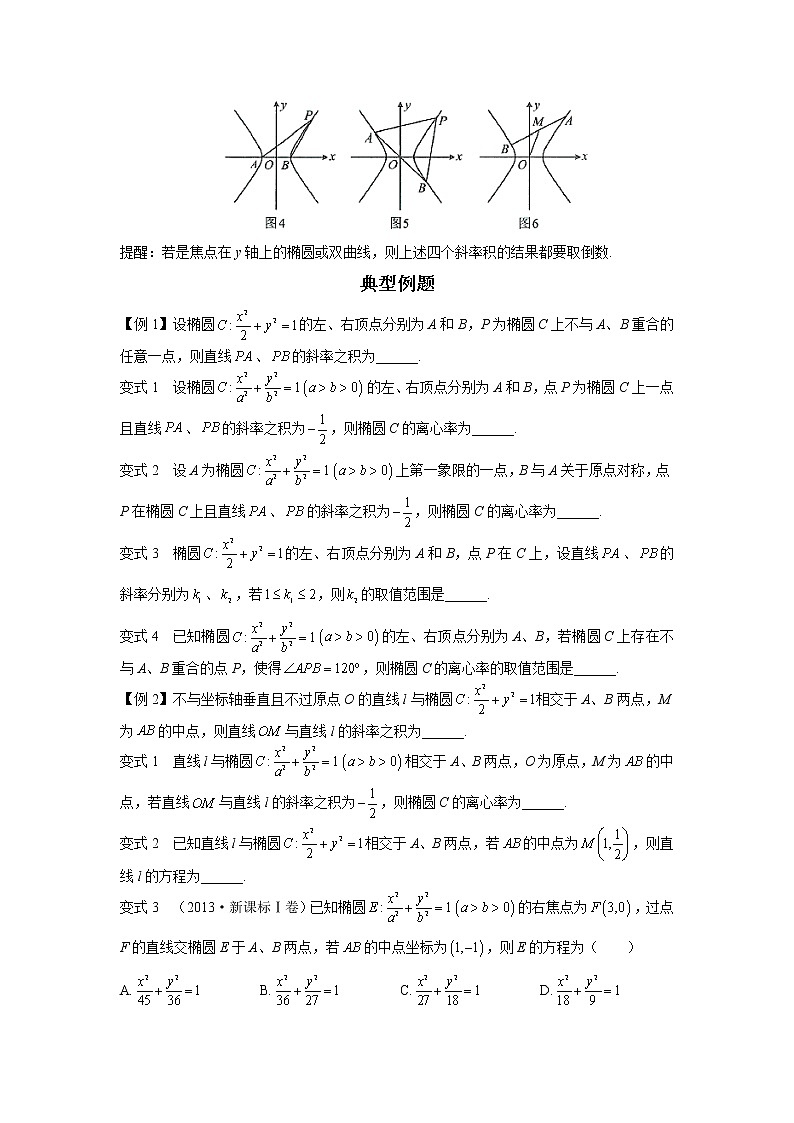 y P A O B x
图4
y P A O x B
图5
y M A B O x
图6
提醒：若是焦点在 y 轴上的椭圆或双曲线，则上述四个斜率积的结果都要取倒数.
典型例题
【例 1】设椭圆 C: x²/2 + y² = 1 的左、右顶点分别为 A 和 B，P 为椭圆 C 上不与 A、B 重合的
任意一点，则直线 PA 、 PB 的斜率之积为______.
变式 1 设椭圆 C: x²/a² + y²/b² = 1 (a > b > 0) 的左、右顶点分别为 A 和 B，点 P 为椭圆 C 上一点
且直线 PA 、 PB 的斜率之积为 −1/2 ，则椭圆 C 的离心率为______.
变式 2 设 A 为椭圆 C: x²/a² + y²/b² = 1 (a > b > 0) 上第一象限的一点，B 与 A 关于原点对称，点
P 在椭圆 C 上且直线 PA 、 PB 的斜率之积为 −1/2 ，则椭圆 C 的离心率为______.
变式 3 椭圆 C: x²/2 + y² = 1 的左、右顶点分别为 A 和 B，点 P 在 C 上，设直线 PA 、 PB 的
斜率分别为 k₁ 、 k₂ ，若 1 ≤ k₁ ≤ 2，则 k₂ 的取值范围是______.
变式 4 已知椭圆 C: x²/a² + y²/b² = 1 (a > b > 0) 的左、右顶点分别为 A、B，若椭圆 C 上存在不
与 A、B 重合的点 P，使得 ∠APB = 120° ，则椭圆 C 的离心率的取值范围是______.
【例 2】不与坐标轴垂直且不过原点 O 的直线 l 与椭圆 C: x²/2 + y² = 1 相交于 A、B 两点，M
为 AB 的中点，则直线 OM 与直线 l 的斜率之积为______.
变式 1 直线 l 与椭圆 C: x²/a² + y²/b² = 1 (a > b > 0) 相交于 A、B 两点，O 为原点，M 为 AB 的中
点，若直线 OM 与直线 l 的斜率之积为 −1/2 ，则椭圆 C 的离心率为______.
变式 2 已知直线 l 与椭圆 C: x²/2 + y² = 1 相交于 A、B 两点，若 AB 的中点为 M(1, 1/2) ，则直
线 l 的方程为______.
变式 3 （2013·新课标Ⅰ卷）已知椭圆 E: x²/a² + y²/b² = 1 (a > b > 0) 的右焦点为 F(3,0) ，过点
F 的直线交椭圆 E 于 A、B 两点，若 AB 的中点坐标为 (1,−1) ，则 E 的方程为（ ）
A. x²/45 + y²/36 = 1 B. x²/36 + y²/27 = 1 C. x²/27 + y²/18 = 1 D. x²/18 + y²/9 = 1